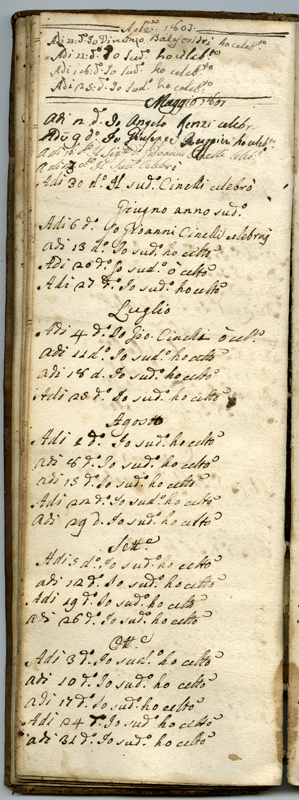 Adi 11: d.º Io Vincenzo ho celeb.to
Adi 11: d.º Io sud.º ho celeb.to
Adi 18: d.º Io sud.º ho celeb.to
Adi 25: d.º Io sud.º ho celeb.to
Maggio 1807
Adi 2 d.º Io Angelo Renzi celebr.
Adi 9 d.º Io Giuseppe ho celeb.to
Adi d.º Giovanni Cinelli celeb.
Adi
Adi 30 d.º Il sud.º Cinelli celebrò
Giugno anno sud.º
Adi 6 d.º Io Giovanni Cinelli celebraj
Adi 13 d.º Io sud.º ho celtº
Adi 20 d.º Io sud.º ò celtº
Adi 27 d.º Io sud.º ho celtº
Luglio
Adi 4 d.º Io Gio. Cinelli ò cel.to
adi 11 d.º Io sud.º ho celtº
adi 18 d. Io sud.º ho celtº
Adi 25 d.º Io sud.º ho celtº
Agosto
Adi 1 d.º Io sud.º ho celtº
adi 8 d.º Io sud.º ho celtº
adi 15 d.º Io sud.º ho celtº
Adi 22 d.º Io sud.º ho celtº
adi 29 d. Io sud.º ho celtº
Sett.e
Adi 5 d.º Io sud.º ho celtº
adi 12 d.º Io sud.º ho celtº
Adi 19 d.º Io sud.º ho celtº
adi 26 d.º Io sud.º ho celtº
Ott.e
Adi 3 d.º Io sud.º ho celtº
adi 10 d.º Io sud.º ho celtº
adi 17 d.º Io sud.º ho celtº
Adi 24 d.º Io sud.º ho celtº
adi 31 d.º Io sud.º ho celtº